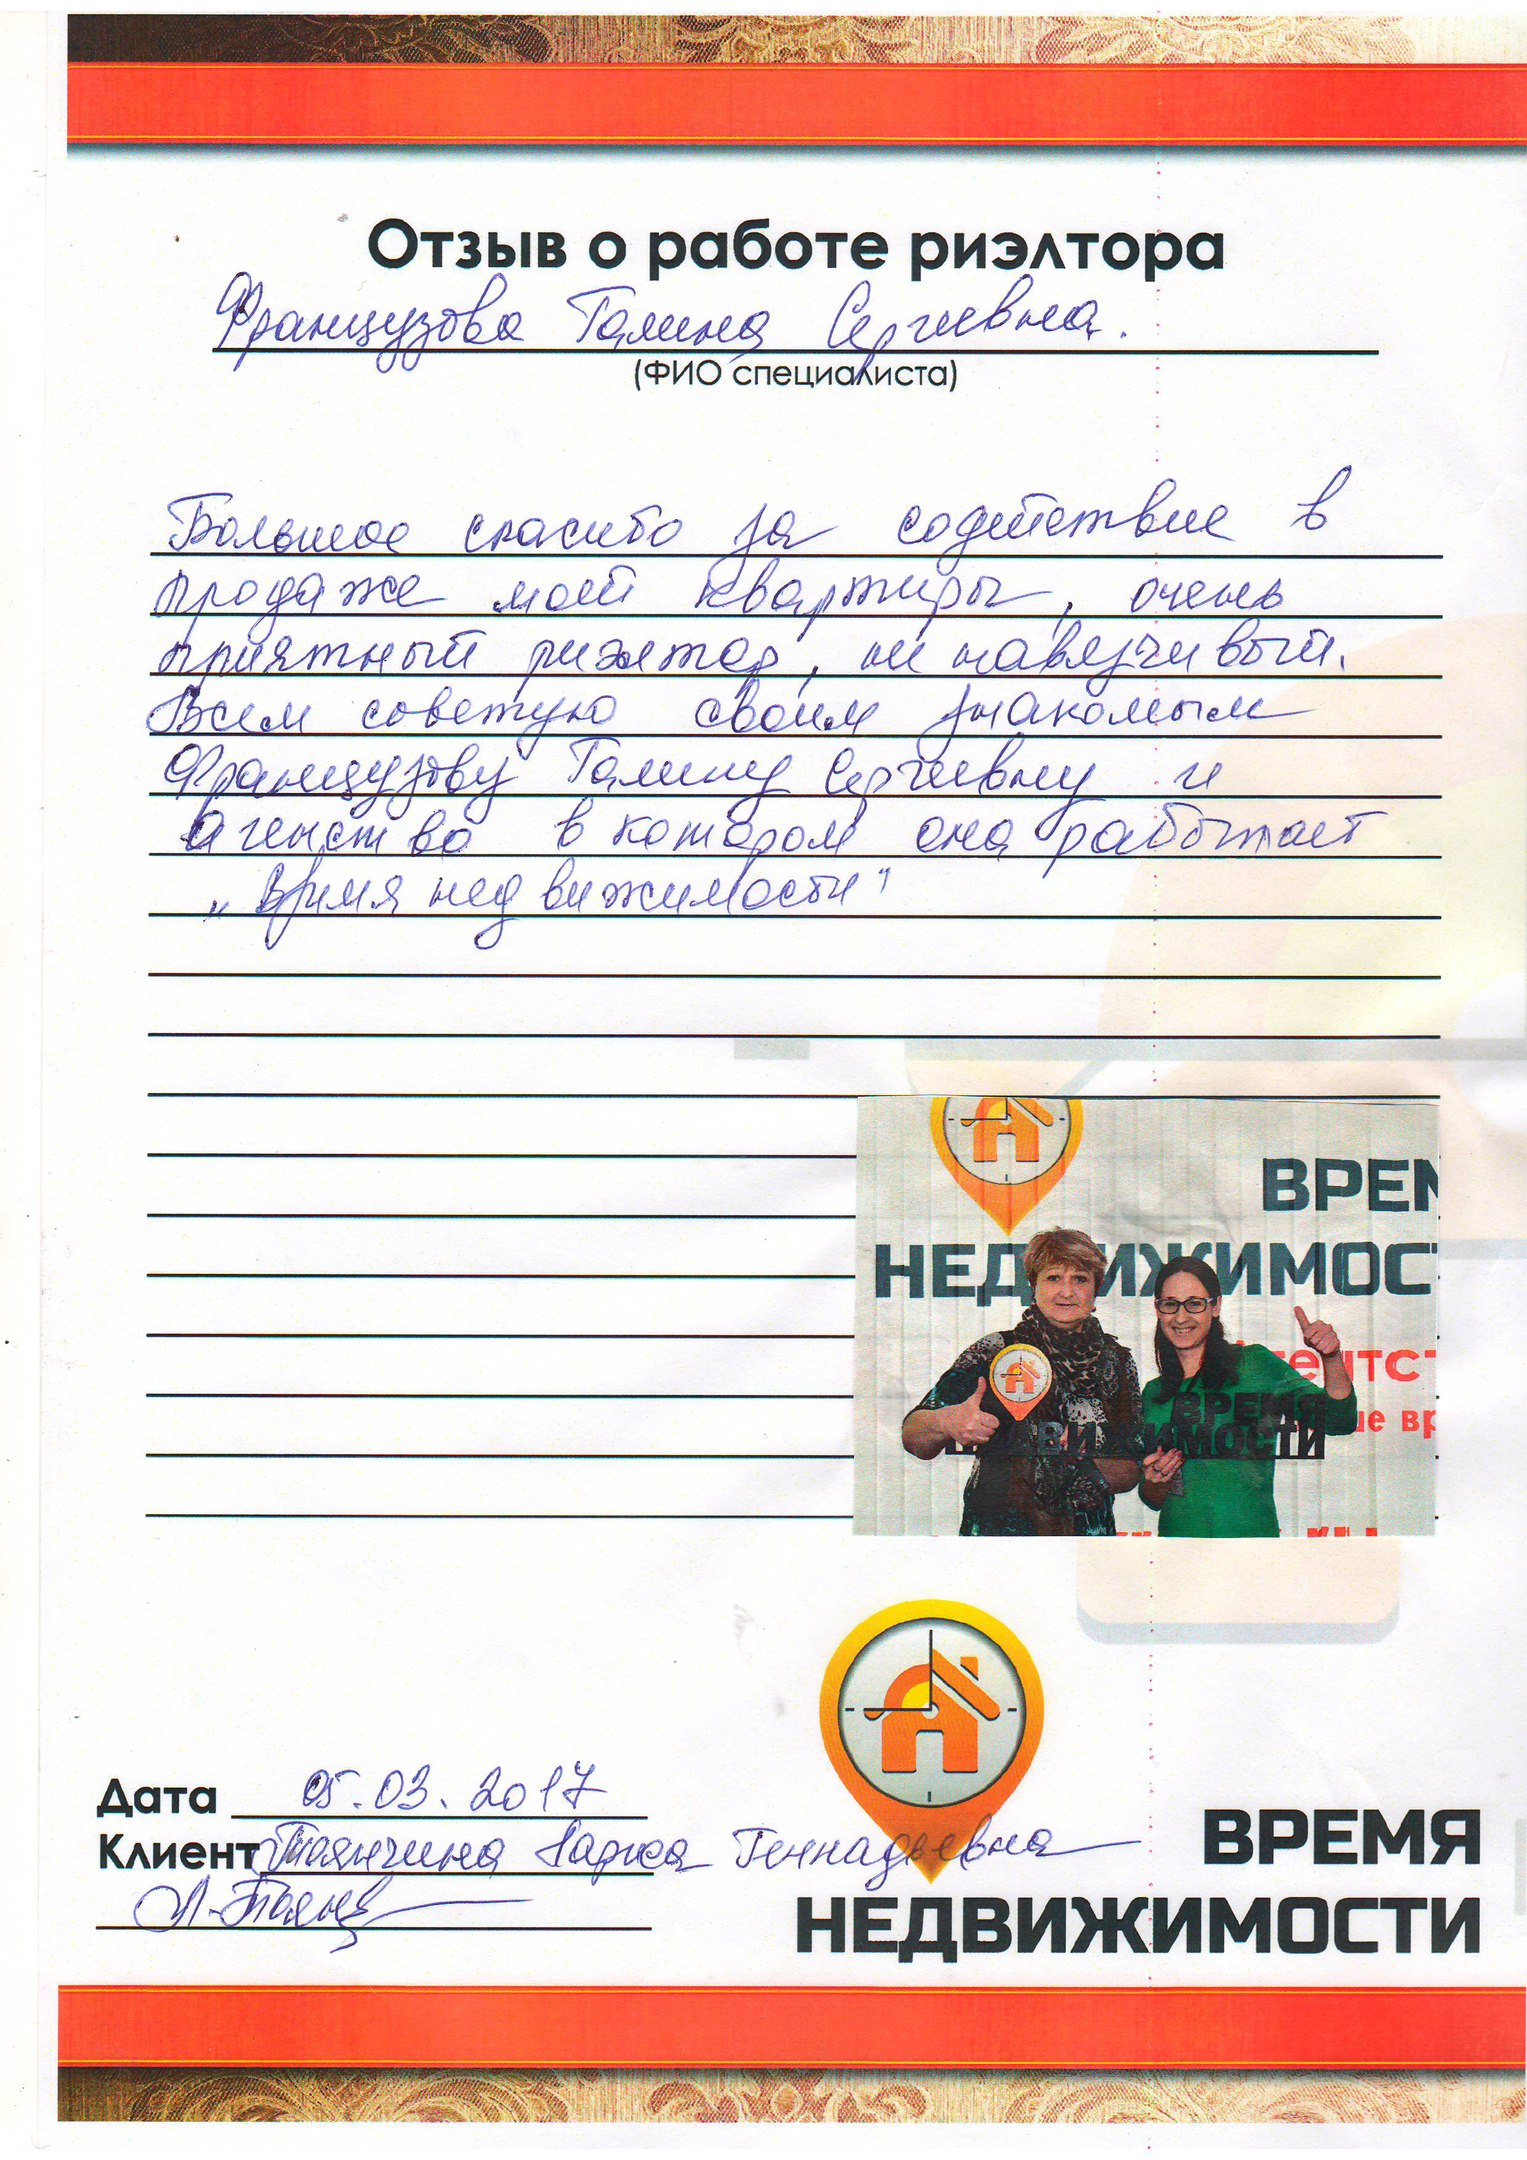 Отзыв о работе риэлтора
Французова Галина Сергеевна.
(ФИО специалиста)
Большое спасибо за содействие в
продаже моей квартиры, очень
приятный риэлтор, не навязчивый.
Всем советую своим знакомым
Французову Галину Сергеевну и
агенство в котором она работает
„Время недвижимости"
ВРЕМ
НЕДВИЖИМОС
Агентст
ше вр
ВРЕМЯ
НЕДВИЖИМОСТИ
Дата 05.03.2017
Клиент Геннадьевна
ВРЕМЯ
НЕДВИЖИМОСТИ